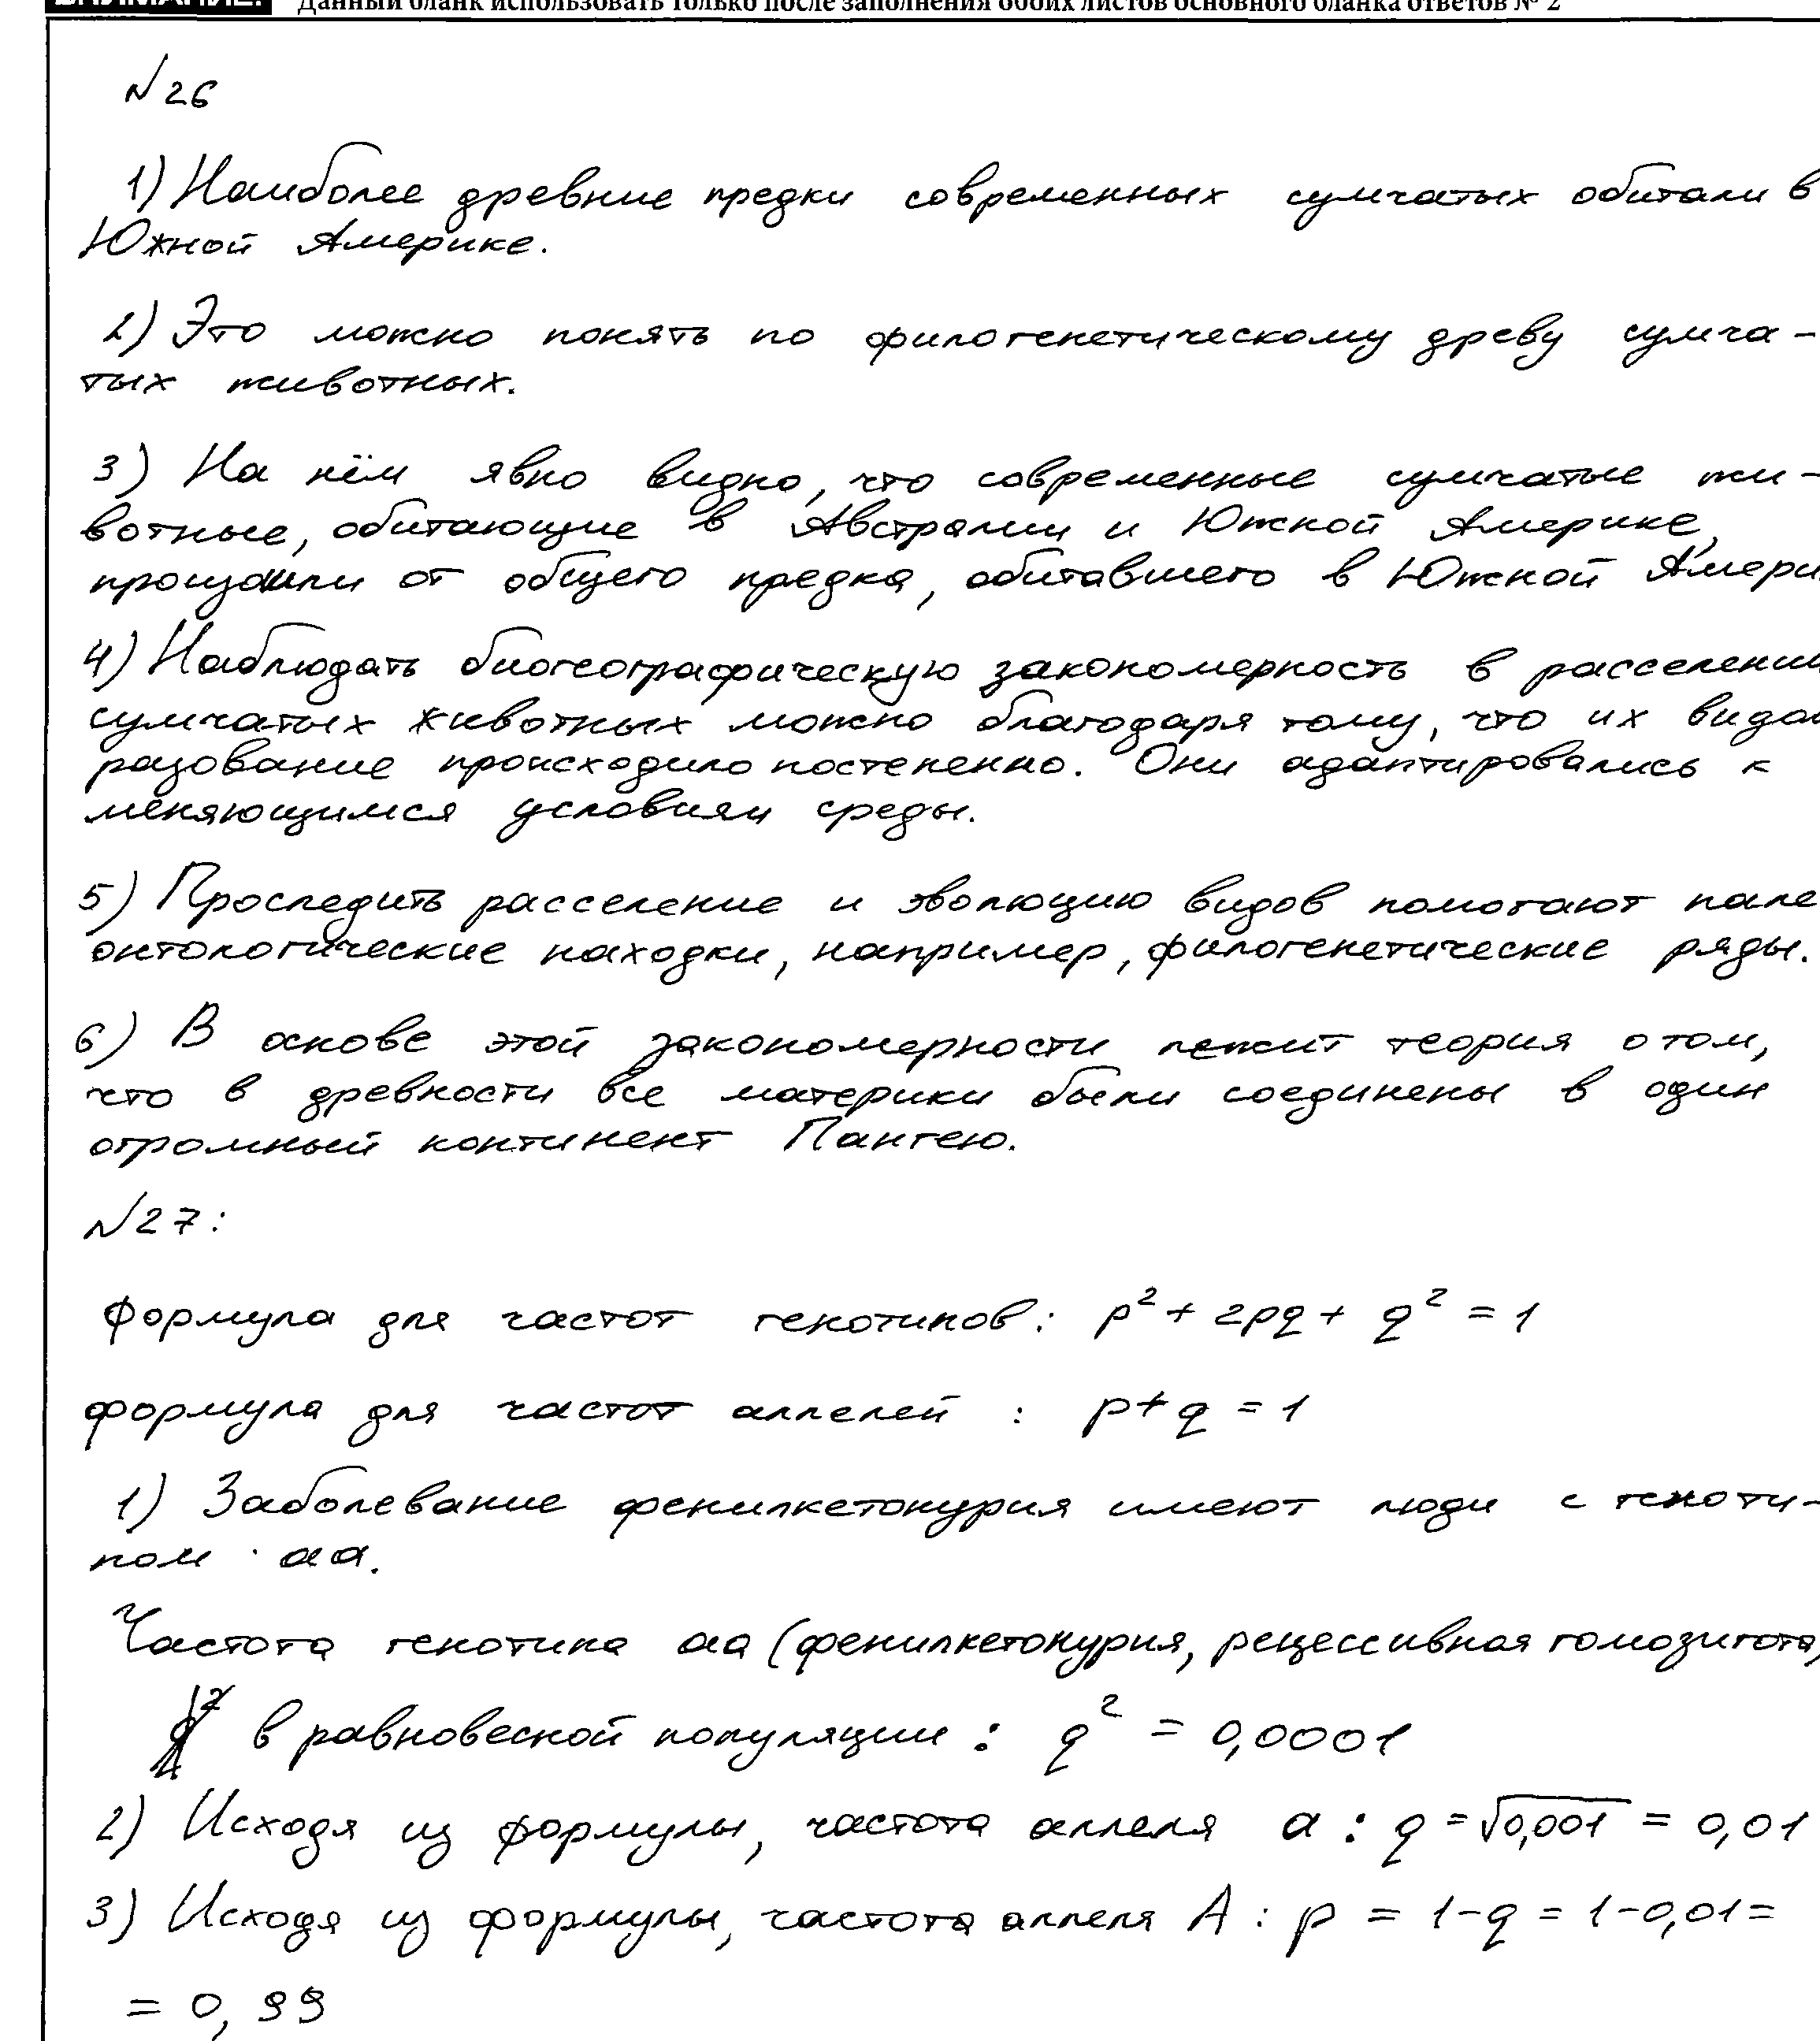 ВНИМАНИЕ! Данный бланк использовать только после заполнения обоих листов основного бланка ответов № 2
№26
1) Наиболее древние предки современных сумчатых обитали в
Южной Америке.
2) Это можно понять по филогенетическому древу сумча-
тых животных.
3) На нём явно видно, что современные сумчатые жи-
вотные, обитающие в Австралии и Южной Америке,
произошли от общего предка, обитавшего в Южной Амери
4) Наблюдать биогеографическую закономерность в расселении
сумчатых животных можно благодаря тому, что их видо
разование происходило постепенно. Они адаптировались к
меняющимся условиям среды.
5) Проследить расселение и эволюцию видов помогают пале
онтологические находки, например, филогенетические ряды.
6) В основе этой закономерности лежит теория о том,
что в древности все материки были соединены в один
огромный континент Пангею.
№27:
Формула для частот генотипов: p² + 2pq + q² = 1
формула для частот аллелей : p+q = 1
1) Заболевание фенилкетонурия имеют люди с геноти-
пом aa.
Частота генотипа aa (фенилкетонурия, рецессивная гомозигота)
в равновесной популяции : q² = 0,0001
2) Исходя из формулы, частота аллеля a : q = √0,001 = 0,01
3) Исходя из формулы, частота аллеля A : p = 1-q = 1-0,01=
= 0,99